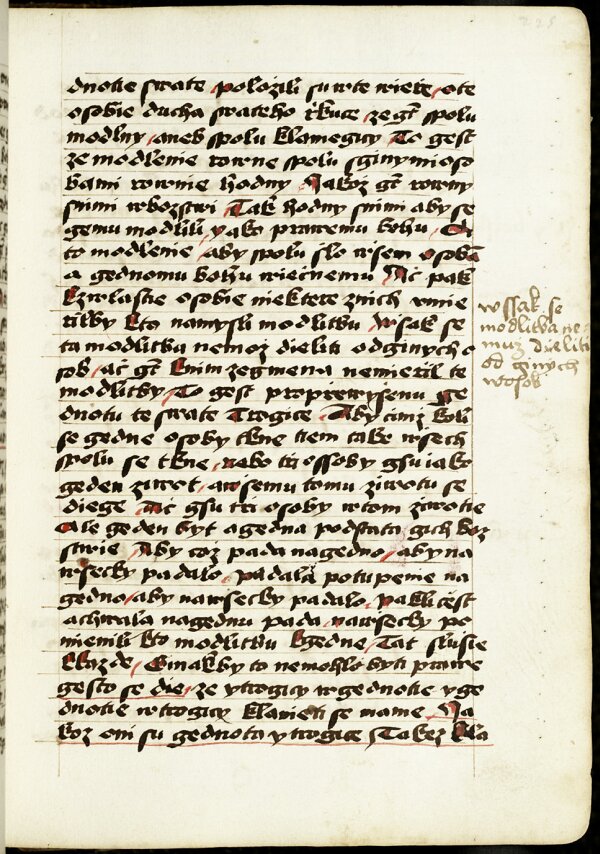 225
dnotie swate polozili su wte wieře ote
osobie ducha swateho řkuce ze gt spolu
modlny aneb spolu klanegicy To gest
ze modlenie rowne spolu sginymi oso
bami rownie hodny Jakoz gt rowny
snimi wbozstwi Tak hodny snimi aby se
gemu modlili yako prawemu bohu
to modlenie aby spolu slo wsem osobā
a gednomu bohu wiecnemu Ač pak
kzwlastie osobie niektere znich vmie
rilby kto namysli modlitbu wsak se
ta modlitba nemoz dieliti odginych o
sob ač gt knim zegmena nemieril te
modlitby To gest pro prewysenu ge
dnotu te swate Trogice Aby cimz koli
se gedne osoby tkne tiem take wsech
spolu se tkne nebo tři ossoby gsu iako
geden ziwot a wsemu tomu ziwotu se
diege Ač gsu tři osoby wtom ziwotie
Ale geden byt agedna podstata gich boz
stwie Aby coz pada nagedno aby na
wsecky padalo padala potupenie na
gedno aby nawsecky padalo pakli čest
achwala nagednu pada nawsecky po
mienili kto modlitbu kgedne Tat slusie
kkazde Ginakby to nemohlo byti prawe
gesto se die ze ytrogicy wgednotie yge
dnotie wtrogicy klanieti se mame Ja
koz oni su gednota ytrogice Takez kla
wssak se
modlitba ne
muz dieliti
od ginych
wosob